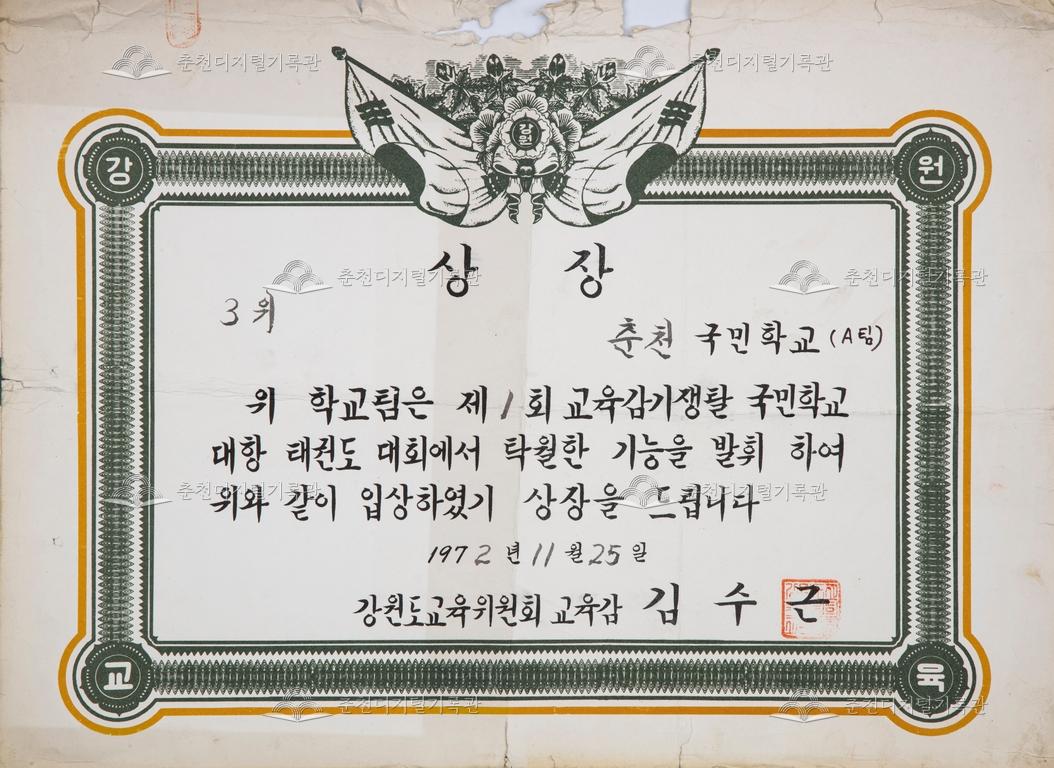 춘천디지털기록관 춘천디지털기록관
강원
강 원
상 장
춘천디지털기록관 춘천디지털기록관
3 위
춘천 국민학교 (A팀)
위 학교팀은 제 1 회 교육감기쟁탈 국민학교
대항 태권도 대회에서 탁월한 기능을 발휘 하여
춘천디지털기록관 춘천디지털기록관
위와 같이 입상하였기 상장을 드립니다
1972 년 11 월 25 일
강원도교육위원회 교육감 김 수 근
교 육
춘천디지털기록관 춘천디지털기록관